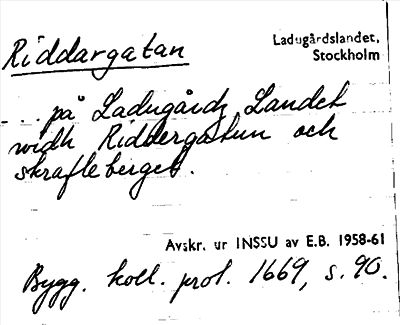 Riddargatan
Ladugårdslandet,
Stockholm
- .. på Ladugårdz Landet
widh Riddergatun och
skrafleberget.
Avskr. ur INSSU av E.B. 1958-61
Bygg. koll. prot. 1669, s. 90.